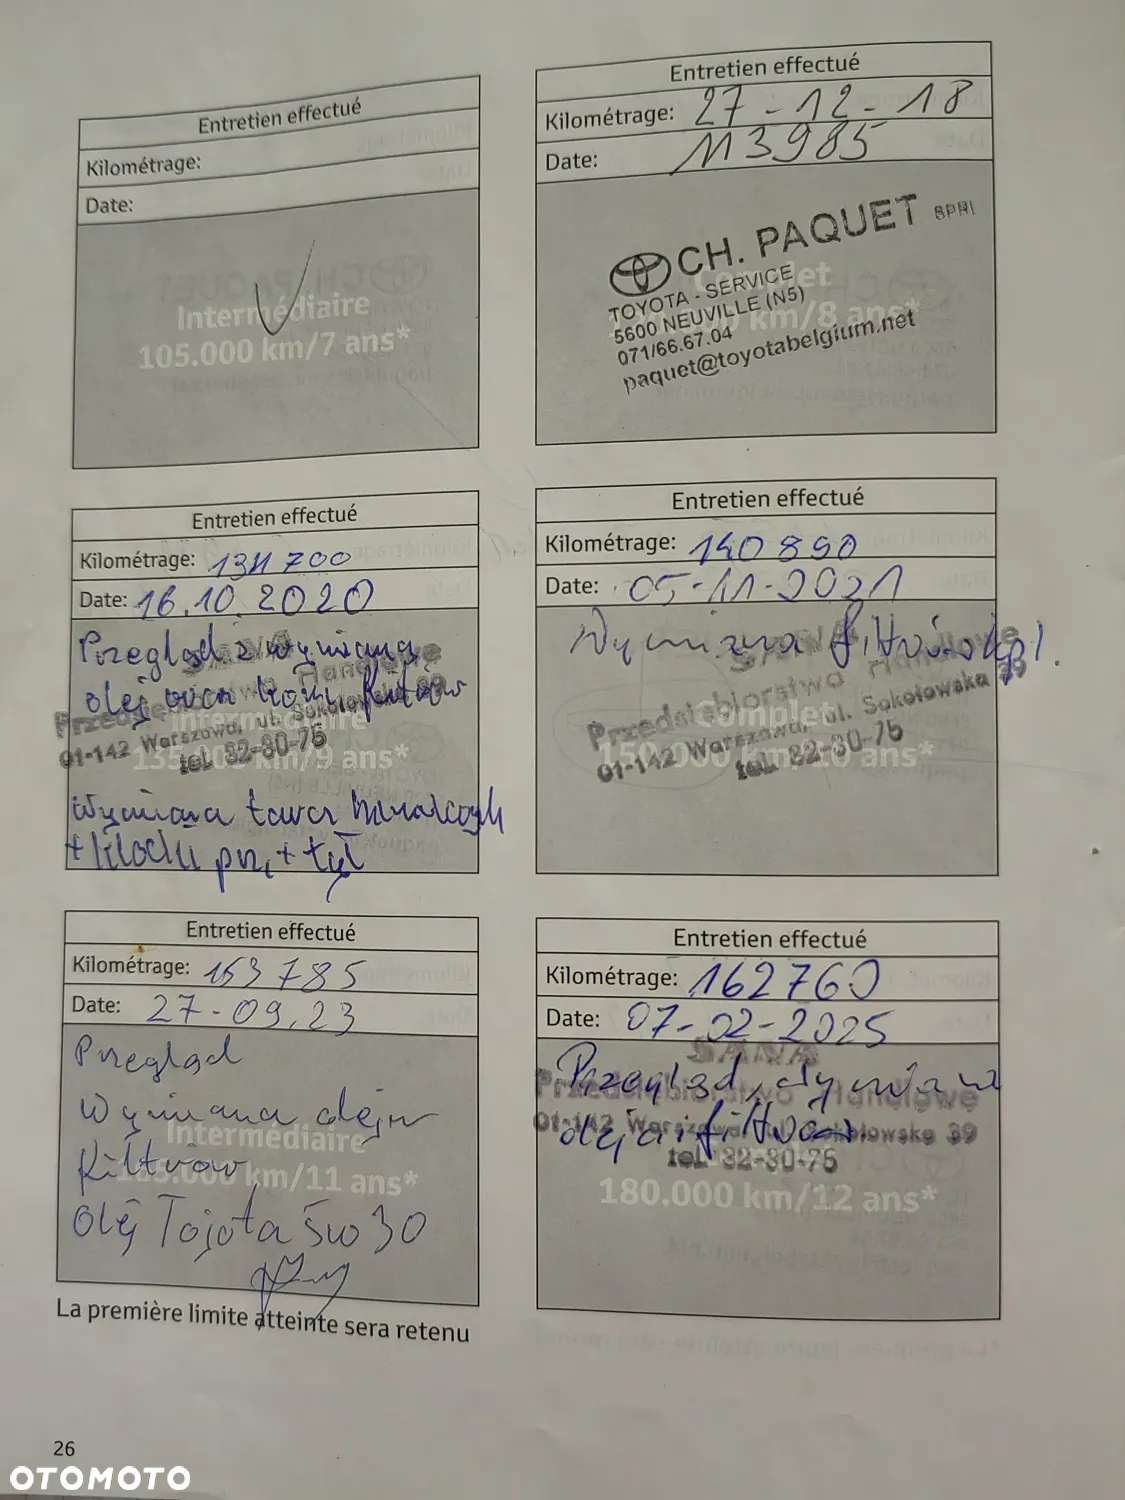 Entretien effectué
Kilométrage:
Date:
Intermédiaire
105.000 km/7 ans*
Entretien effectué
Kilométrage: 27-12-18
Date: 113985
CH. PAQUET SPRL
TOYOTA - SERVICE
5600 NEUVILLE (N5)
071/66.67.04
paquet@toyotabelgium.net
Complet
km/8 ans*
Entretien effectué
Kilométrage: 134 700
Date: 16.10.2020
Przegląd z wymianą
olej oraz filtrów
Przedsiębiorstwo Handlowe
01-142 Warszawa, ul. Sokołowska 39
tel. 32-80-75
Intermédiaire
135.000 km/9 ans*
Wymiana tarcz hamulcowych
+ klocki prz. + tył
Entretien effectué
Kilométrage: 140 890
Date: 05-11-2021
Wymiana filtrów
Przedsiębiorstwo Handlowe
01-142 Warszawa, ul. Sokołowska 39
tel. 32-80-75
Complet
150.000 km/10 ans*
Entretien effectué
Kilométrage: 153 785
Date: 27-09.23
Przegląd
Wymiana oleju
filtrów
Olej Tojota 5w30
Intermédiaire
165.000 km/11 ans*
Entretien effectué
Kilométrage: 162760
Date: 07-02-2025
Przegląd, wymiana
oleju i filtrów
SANA
Przedsiębiorstwo Handlowe
01-142 Warszawa, ul. Sokołowska 39
tel. 32-80-75
180.000 km/12 ans*
La première limite atteinte sera retenu
26
OTOMOTO